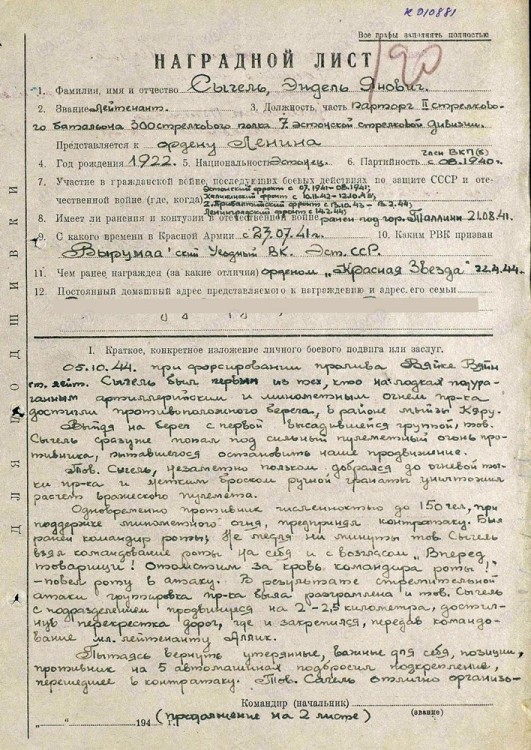 К 010881
Все графы заполнять полностью
НАГРАДНОЙ ЛИСТ
190
1. Фамилия, имя и отчество Сыгель, Эндель Янович.
2. Звание Лейтенант. 3. Должность, часть Парторг II стрелково-
го батальона 300 стрелкового полка 7. эстонской стрелковой дивизии.
Представляется к ордену Ленина
член ВКП(б)
4. Год рождения 1922. 5. Национальность Эстонец. 6. Партийность с 08.1940г.
7. Участие в гражданской войне, последующих боевых действиях по защите СССР и оте-
чественной войне (где, когда) Эстонский фронт с 07.1941-08.1941;
Калининский фронт с
2. Прибалтийский фронт с
Ленинградский фронт с 14.2.44;
8. Имеет ли ранения и контузии в отечественной войне ранен под гор. Таллинн 21.08.41.
9. С какого времени в Красной Армии с 27.07.41г. 10. Каким РВК призван
Вырумаа'ский Уездный ВК. Эст. ССР.
11. Чем ранее награжден (за какие отличия) орденом „Красная Звезда" 22.4.44.
12. Постоянный домашний адрес представляемого к награждению и адрес его семьи
I. Краткое, конкретное изложение личного боевого подвига или заслуг.
05.10.44. при форсировании пролива Вяйке Вяйн
ст. лейт. Сыгель был первым из тех, кто на лодках под ура-
ганным артиллерийским и минометным огнем пр-ка
достигли противоположного берега, в районе мызы Кяру.
Выйдя на берег с первой высадившейся группой, тов.
Сыгель сразу же попал под сильный пулеметный огонь про-
тивника, пытавшегося остановить наше продвижение.
Тов. Сыгель, незаметно ползком добрался до огневой точ-
ки пр-ка и метким броском ручной гранаты уничтожил
расчет вражеского пулемета.
Одновременно противник численностью до 150 чел, при
поддержке минометного огня, предпринял контратаку. Был
ранен командир роты. Не медля ни минуты тов. Сыгель
взял командование роты на себя и с возгласом „Вперед
товарищи! Отомстим за кровь командира роты!"
-повел роту в атаку. В результате стремительной
атаки группировка пр-ка была разгромлена и тов. Сыгель
с подразделением продвинулся на 2-2,5 километра, достиг-
нув перекрестка дорог, где и закрепился, передав командо-
вание мл. лейтенанту Аллик.
Пытаясь вернуть утерянные, важные для себя, позиции,
противник на 5 автомашинах подбросил подкрепление,
перешедшее в контратаку. Тов. Сыгель отлично организо-
Командир (начальник)
(звание)
„ " 194 г. (продолжение на 2 листе)
ДЛЯ ПОДШИВКИ